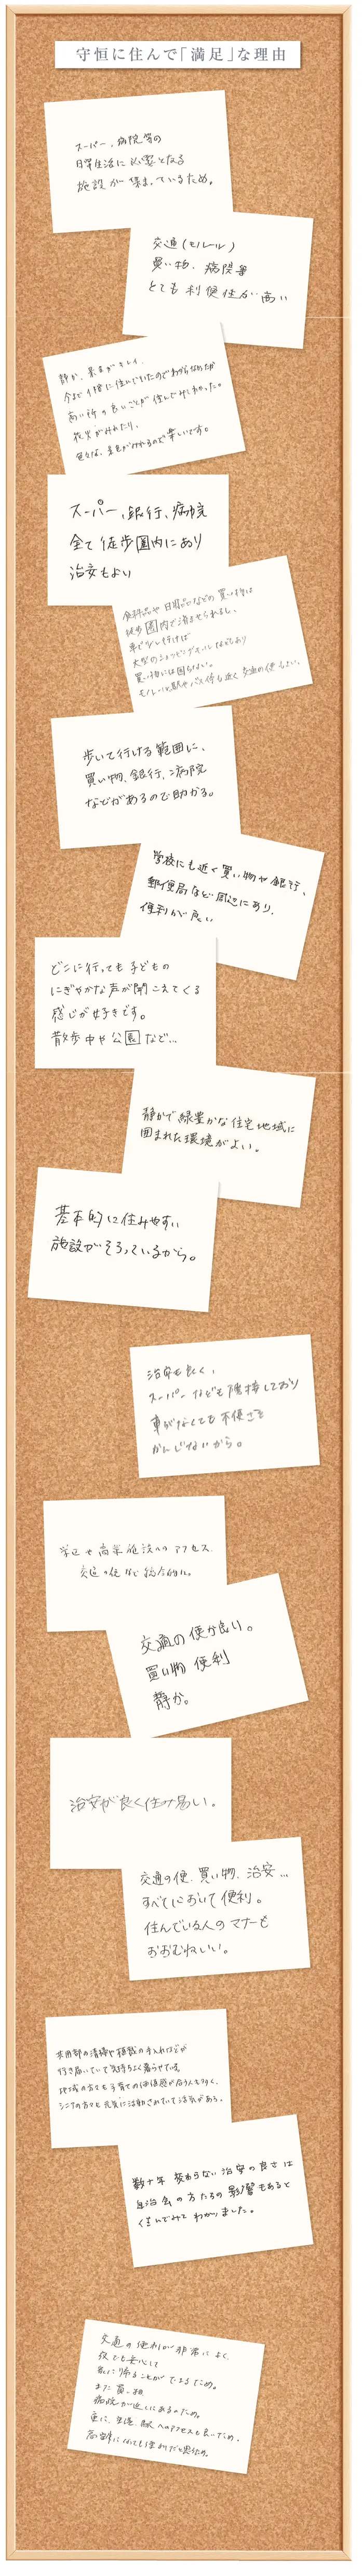 守恒に住んで「満足」な理由
スーパー、病院等の
日常生活に必要となる
施設が集まっているため。
交通(モノレール)
買い物、病院等
とても利便性が高い
静か、景色がキレイ、
今まで1階に住んでいたのでわからなかったが
高い所の良いことが住んでみてわかった。
花火がみれたり、
色々な景色がみれるので楽しいです。
スーパー、銀行、病院
全て徒歩圏内にあり
治安もよい
食料品や日用品などの買い物は
徒歩圏内で済ませられるし、
車で少し行けば
大型のショッピングモールなどもあり
買い物には困らない。
モノレール駅やバス停も近く交通の便もよい。
歩いて行ける範囲に、
買い物、銀行、病院
などがあるので助かる。
学校にも近く買い物や銀行、
郵便局など周辺にあり、
便利が良い
どこに行っても子どもの
にぎやかな声が聞こえてくる
感じが好きです。
散歩中や公園など…
静かで緑豊かな住宅地域に
囲まれた環境がよい。
基本的に住みやすい
施設がそろっているから。
治安も良く、
スーパーなども隣接しており
車がなくても不便さを
かんじないから。
学校や商業施設へのアクセス、
交通の便など総合的に。
交通の便が良い。
買い物便利
静か。
治安が良く住み易い。
交通の便、買い物、治安…
すべてにおいて便利。
住んでいる人のマナーも
おおむねいい。
共用部の清掃や植栽の手入れなどが
行き届いていて気持ちよく暮らせている。
地域の方々も子育ての価値感が合う人も多く、
シニアの方々も元気に活動されていて活気がある。
数十年変わらない治安の良さは
自治会の方たちの影響もあると
住んでみてわかりました。
交通の便利が非常によく、
夜でも安心して
家に帰ることができるため。
また買い物
病院が近くにあるため。
更に、空港、駅へのアクセスも良いため、